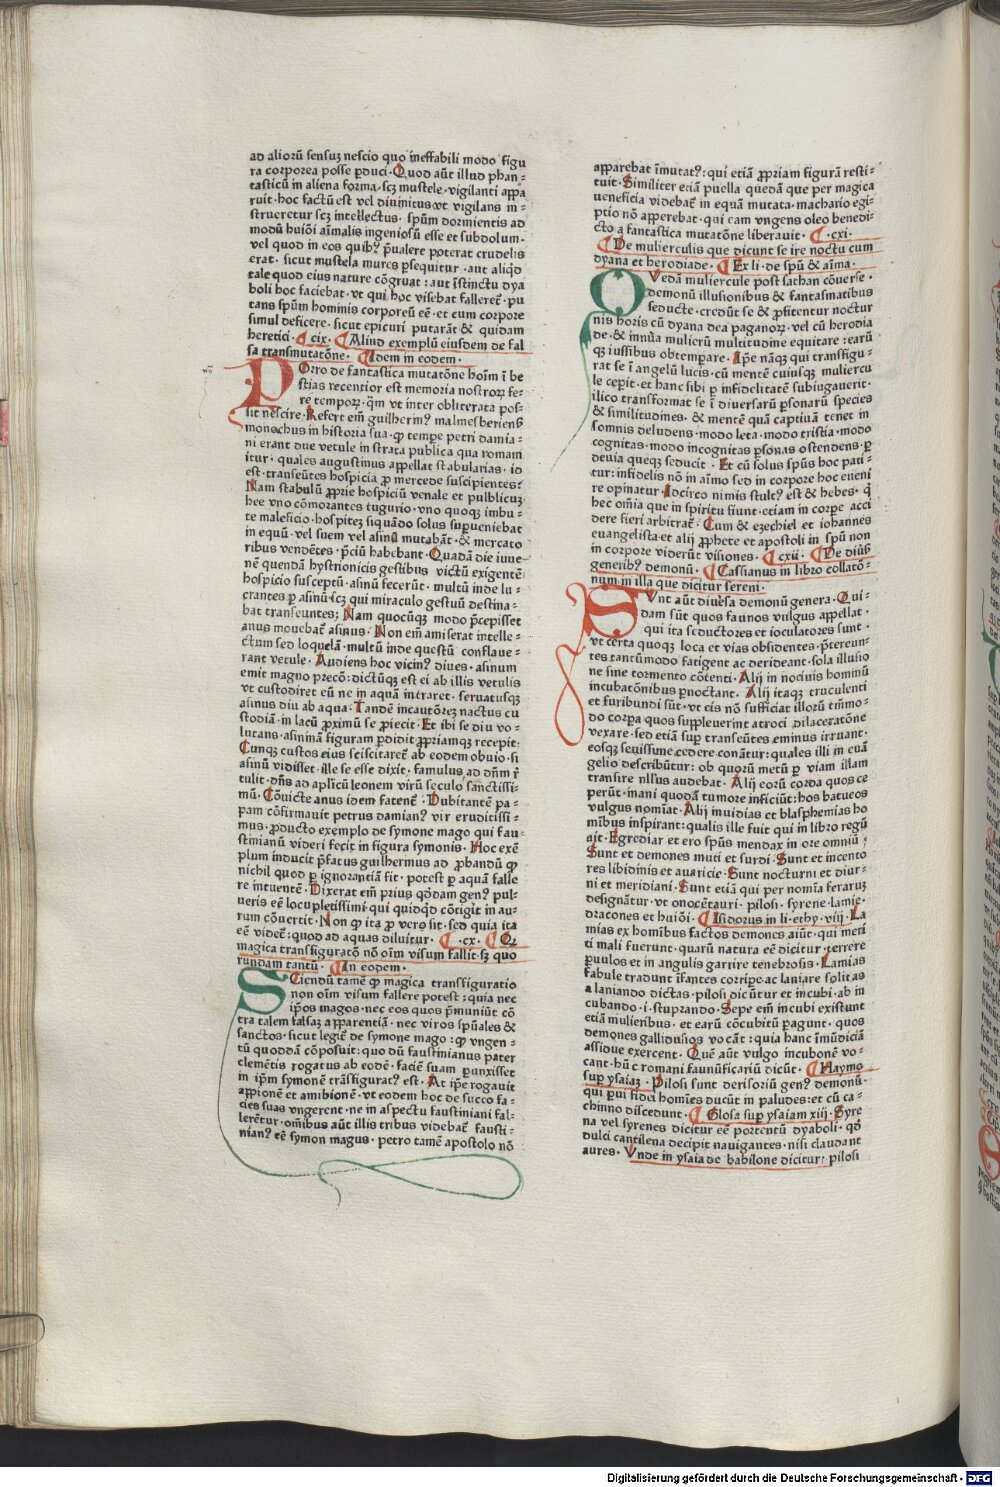 ad alioꝝ sensuꝫ nescio quo ineffabili modo figu
ra corporea posse ꝑduci · Quod aūt illud phan⸗
tasticū in aliena forma · scꝫ mustele · vigilanti appa
ruit · hoc factū est vel diuinitus vt vigilans in⸗
strueretur scꝫ intellectus · spūm dormientis ad
modū huiōi aīmalis ingeniosū esse et subdolum ·
vel quod in eos quibꝰ p̄ualere poterat crudelis
erat · sicut mustela mures ꝑsequitur · aut aliqd̄
tale quod eius nature cōgruat : aut īstinctu dya
boli hoc faciebat · vt qui hoc visebat fallereť · pu
tans spūm hominis corporeū eē · et cum corpore
simul deficere · sicut epicuri putarāt & quidam
heretici · ¶ cix · ¶ Aliud exemplū eiusdem de fal
sa transmutatōne · ¶ Idem in eodem ·
POrro de fantastica mutatōne hoīm ī be
stias recentior est memoria nostroꝝ fe⸗
re tempoꝝ · q̄m vt inter obliterata pos⸗
sit nescire · Refert em̄ guilhermꝰ malmesberiensꝭ
monachus in historia sua · ꝙ tempe petri damia⸗
ni erant due vetule in strata publica qua romam
itur · quales augustinus appellat stabularias · id
est · transeūtes hospicia ꝓ mercede suscipientes :
Nam stabulū ꝓprie hospiciū venale et pulblicuꝫ
hee vno cōmorantes tugurio · vno quoqꝫ imbu⸗
te maleficio · hospiteꝫ siquādo solus suꝑueniebat
in equū · vel suem vel asinū mutabāt · & mercato
ribus vendētes · p̄ciū habebant · Quadā die iuue⸗
nē quendā hystrionicis gestibus victū exigentē
hospicio susceptū · asinū fecerūt · multū inde lu⸗
crantes ꝑ asinū · scꝫ qui miraculo gestuū destina⸗
bat transeuntes · Nam quocūqꝫ modo p̄cepisset
anus mouebať asinus · Non em̄ amiserat intelle⸗
ctum sed loquelā · multū inde questū conflaue⸗
rant vetule · Audiens hoc vicinꝰ diues · asinum
emit magno precō : dictūqꝫ est ei ab illis vetulis
vt custodiret eū ne in aquā intraret · seruatusqꝫ
asinus diu ab aqua · Tandē incautōreꝫ nactus cu
stodiā · in lacū ꝓximū se ꝓiecit · Et ibi se diu vo⸗
lutans · asininā figuram ꝑdidit ꝓpriamqꝫ recepit ·
Cunqꝫ custos eius sciscitareť ab eodem obuio · si
asinū vidisset · ille se esse dixit · famulus ad dn̄m r̄
tulit · dn̄s ad apl̄icū leonem virū seculo sanctissi⸗
mū · Cōuicte anus idem fatenť · Dubitantē pa⸗
pam cōfirmauit petrus damianꝰ vir eruditissi⸗
mus · ꝓducto exemplo de symone mago qui fau⸗
stinianū videri fecit in figura symonis · Hoc exē
plum inducit p̄fatus guilhermus ad ꝓbandū ꝙ
nichil quod ꝑ ignorantiā fit · potest ꝑ aquā falle
re intuentē · Dixerat em̄ prius qd̄dam genꝰ pul⸗
ueris eē locupletissimi qui quidqd̄ cōtigit in au⸗
rum cōuertit · Non ꝙ ita ꝓ vero sit · sed quia ita
eē videť : quod ad aquas diluitur · ¶ · cx · ¶ Qꝫ
magica transfiguratō nō oīm visum fallit sꝫ quo
rundam tantū · ¶ In eodem ·
SCiendū tamē ꝙ magica transfiguratio
non oīm visum fallere potest : quia nec
ip̄os magos · nec eos quos p̄muniūt cō
tra talem falsaꝫ apparentiā · nec viros spūales &
sanctos · sicut legiť de symone mago : ꝙ vngen⸗
tū quoddā cōposuit : quo dū faustinianus pater
clemētis rogatus ab eodē · faciē suam ꝑunxisset
in ip̄m symonē trāsfiguratꝰ est · At ip̄e rogauit
appionē et amibionē · vt eodem hoc de succo fa⸗
cies suas vngerent · ne in aspectu faustiniani fal⸗
lerētur · om̄ibus aūt illis tribus videbať fausti⸗
nianꝰ eē symon magus · petro tamē apostolo nō
apparebat īmutatꝰ : qui etiā ꝓpriam figurā resti⸗
tuit · Similiter etiā puella quedā que per magica
ueneficia videbať in equā mutata · machario egi⸗
ptio nō apperebat · qui eam vngens oleo benedi⸗
cto a fantastica mutatōne liberauit · ¶ · cxi ·
¶ De mulierculis que dicunt se ire noctu cum
dyana et herodiade · ¶ Ex li · de spū & aīma ·
QVedā muliercule post sathan cōuerse ·
demonū illusionibus & fantasmatibus
seducte · credūt se & ꝓfitentur noctur
nis horis cū dyana dea paganoꝝ · vel cū herodia
de · & innūa mulierū multitudine equitare : earū
qꝫ iussibus obtempare · Ip̄e nāqꝫ qui transfigu⸗
rat se ī angelū lucis · cū mentē cuiusqꝫ muliercu
le ceꝑit · et hanc sibi ꝑ infidelitatē subiugauerit ·
ilico transformat se ī diuersarū ꝑsonarū species
& similitudines · & mentē quā captiuā tenet in
somnis deludens · modo leta · modo tristia · modo
cognitas · modo incognitas ꝑsonas ostendens · ꝑ
deuia queqꝫ seducit · Et cū solus spūs hoc pati⸗
tur : infidelis nō in aīmo sed in corpore hoc eueni
re opinatur · Idcirco nimis stultꝰ est & hebes · qͥ
hec om̄ia que in spiritu fiunt · etiam in corpe acci
dere fieri arbitrať · Cum & ezechiel et iohannes
euangelista · et alij ꝓphete et apostoli in spū non
in corpore viderūt visiones · ¶ cxii · ¶ De diūsꝭ
generibꝰ demonū · ¶ Cassianus in libro collatō⸗
num in illa que dicitur sereni ·
SVnt aūt diuēsa demonū genera · Qui⸗
dam sūt quos faunos vulgus appellat ·
qui ita seductores et ioculatores sunt ·
vt certa quoqꝫ loca et vias obsidentes · p̄tereun⸗
tes tantūmodo fatigent ac derideant · sola illusio
ne sine tormento cōtenti · Alij in nociuis hominū
incubatōnibus ꝑnoctant · Alij itaqꝫ truculenti
et furibundi sūt · vt eis nō sufficiat illorū tm̄mo⸗
do corpa quos suppleuerint atroci dilaceratōne
vexare · sed etiā suꝑ transeūtes eminus irruant ·
eosqꝫ seuissime cedere conātur : quales illi in euā
gelio describūtur : ob quorū metū ꝑ viam illam
transire nll̄us audebat · Alij eorū corda quos ce
perūt · inani quodā tumore inficiūt : hos batueos
vulgus nomīat · Alij inuidias et blasphemias ho
mībus inspirant : qualis ille fuit qui in libro regū
ait · Egrediar et ero spūs mendax in ore omniū ·
Sunt et demones muti et surdi · Sunt et incento
res libidinis et auaricie · Sunt nocturni et diur⸗
ni et meridiani · Sunt etiā qui per nomīa feraruꝫ
designātur · vt onocētauri · pilosi · syrene · lamie ·
dracones et huiōi · ¶ Isidorus in li · ethy · viij · La
mias ex homībus factos demones aiūt · qui meri
ti mali fuerunt · quarū natura eē dicitur · terrere
ꝑuulos et in angulis garrire tenebrosis · Lamias
fabule tradunt īfantes corripe · ac laniare solitas
a laniando dictas · pilosi dicūtur et incubi · ab in
cubando · i · stuprando · Sepe em̄ incubi existunt
etiā mulieribus · et earū cōcubitū ꝑagunt · quos
demones galli dusios vocāt : quia hanc īmūdiciā
assidue exercent · Quē aūt vulgo incubonē vo⸗
cant · hūc romani faunūficariū dicūt · ¶ Haymo
suꝑ ysaiaꝫ · Pilosi sunt derisoriū genꝰ demonū ·
qui ꝑui fidei homīes ducūt in paludes : et cū ca⸗
chinno discedunt · ¶ Glosa suꝑ ysaiam xiij · Syre
na vel syrenes dicitur eē portentū dyaboli · qd̄
dulci cantilena decipit nauigantes · nisi claudant
aures · Vnde in ysaia de babilone dicitur : pilosi
Digitalisierung gefördert durch die Deutsche Forschungsgemeinschaft · DFG